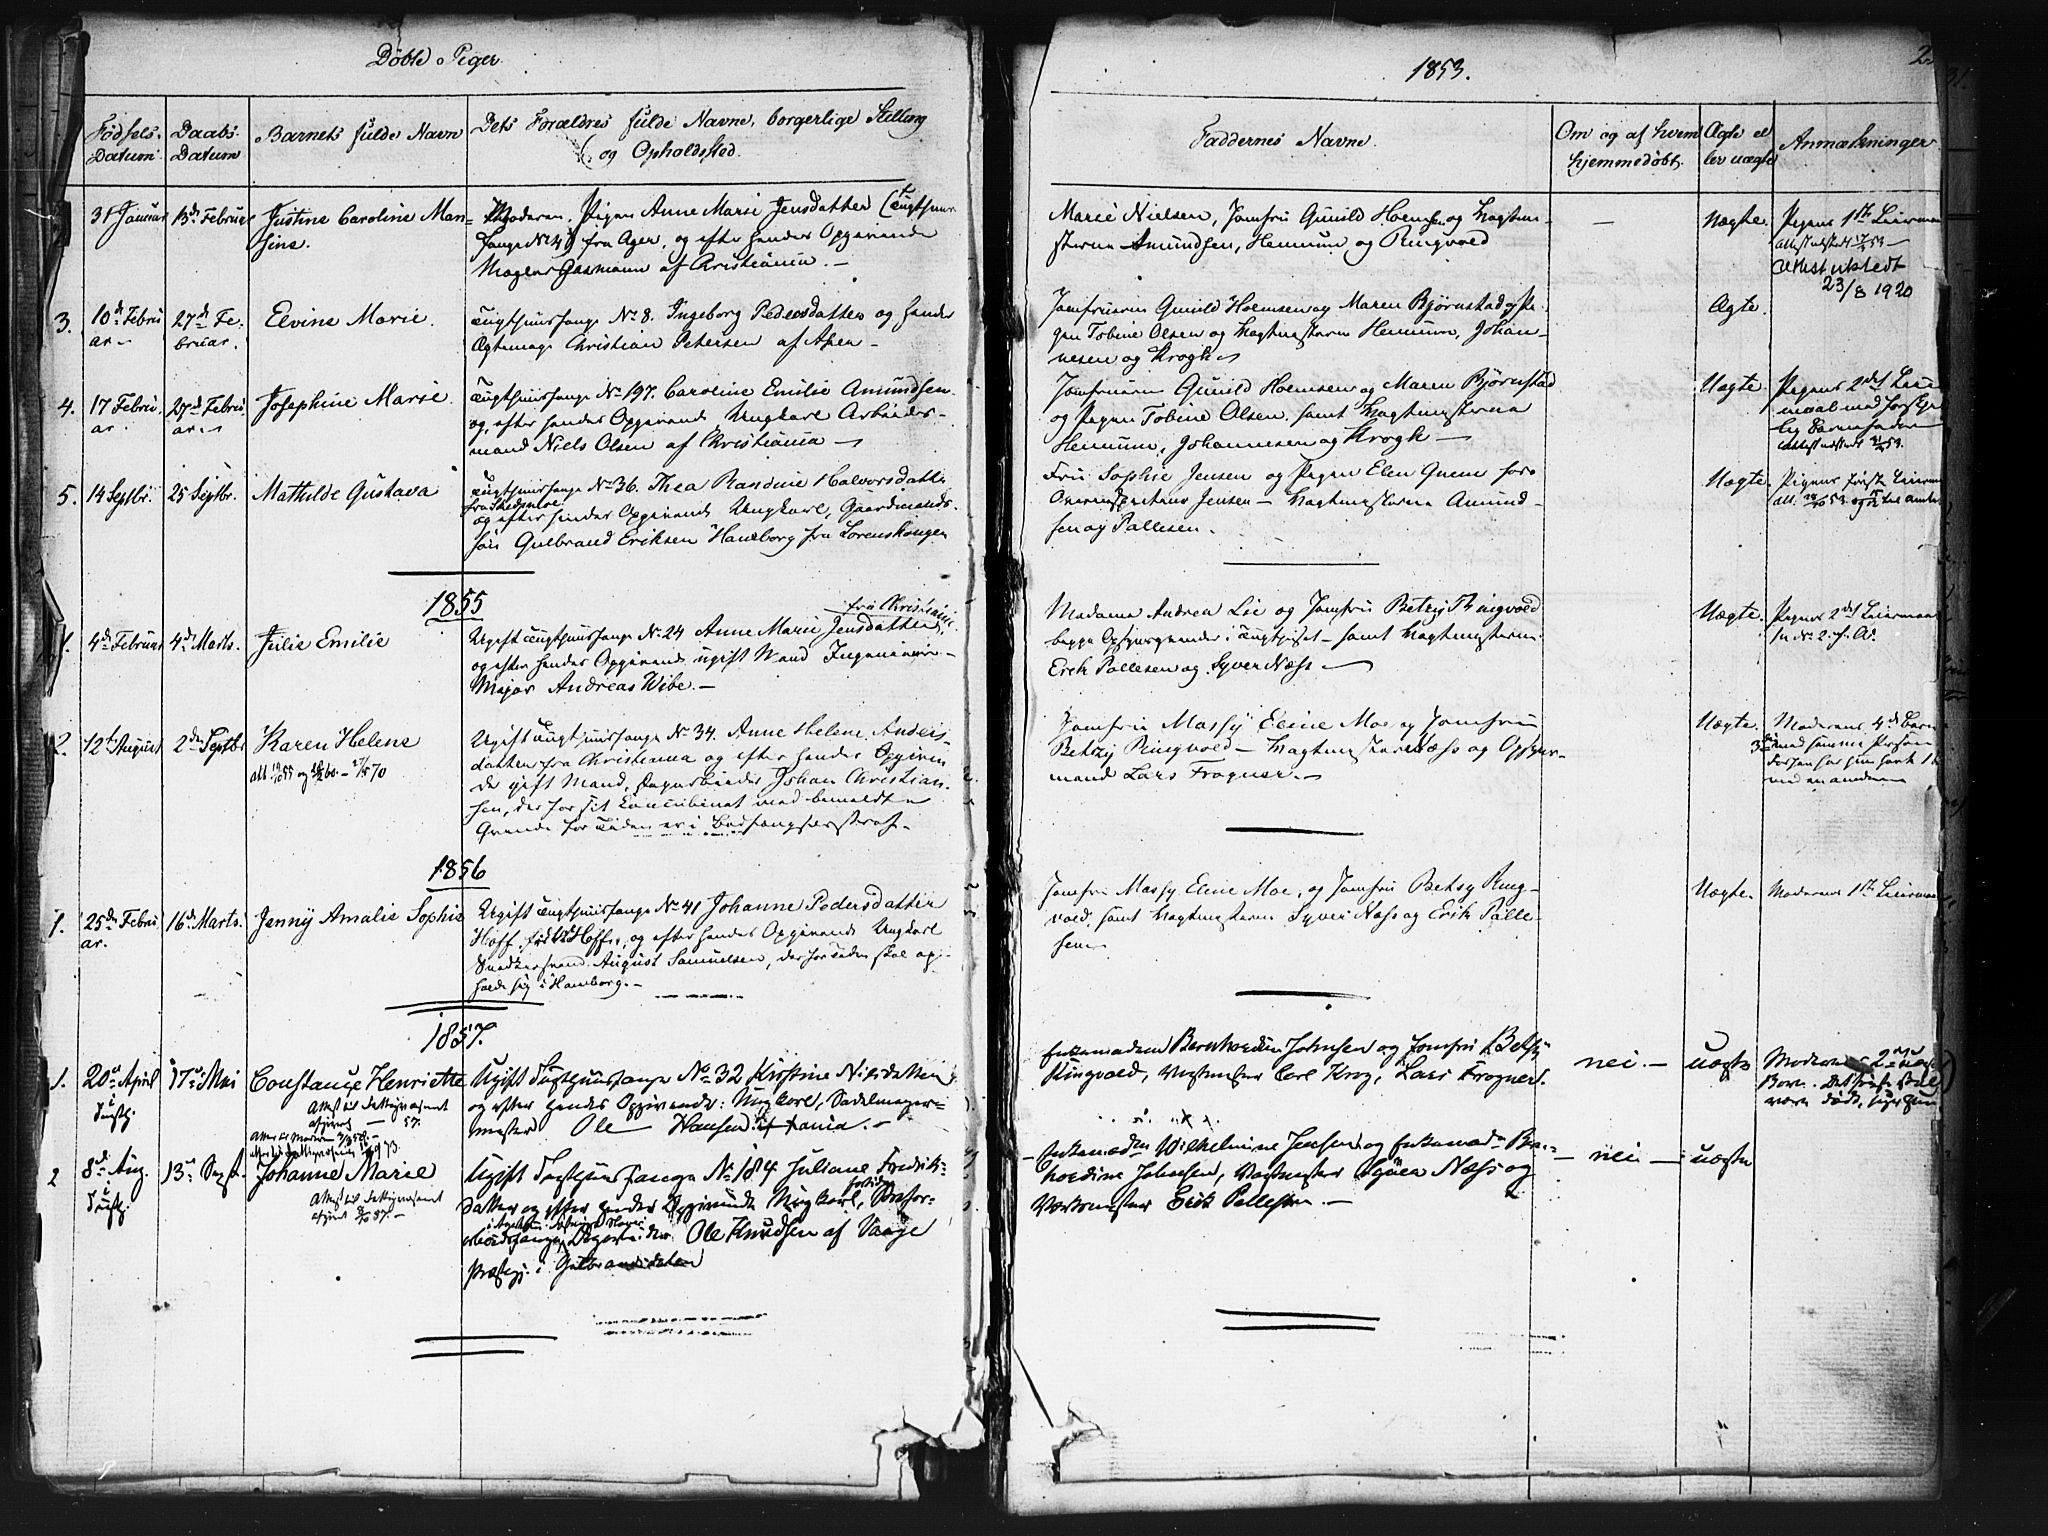 Døbte Piger
Fødsels-
Datum
Daabs-
Datum
Barnets fulde Navn
Dets Forældres fulde Navne, borgerlige Stilling
og Opholdssted.
31 Januar
13de Februar
Justine Caroline Man-
sine.
Moderen, Pigen Anne Marie Jensdatter (Tugthuus
fange No 41) fra Ager, og efter hendes Opgivende
Mogens Gasmann af Christiania. —
3.
10de Febru
ar
27de Fe-
bruar.
Elvine Marie.
Tugthuusfange No 8. Ingeborg Pedersdatter og hendes
Ægtemage Christian Petersen af Asen —
4.
17 Febru
ar.
27de Febru
ar
Josephine Marie.
Tugthuusfange No 197. Caroline Emilie Amundsen
og, efter hendes Opgivende Ungkarl Arbeids-
mand Niels Olsen af Christiania —
5.
14 Septbr.
25 Septbr.
Mathilde Gustava
Tugthuusfange No 36. Thea Randine Halvorsdatter
fra Skedsmoe
og efter hendes Opgivende Ungkarl, Gaardmands-
søn Gulbrand Eriksen Hauxborg fra Lørenskougen
1855
1.
4de Februar
4de Marts.
Julie Emilie
fra Christiania
Ugift Tugthuusfange No 24 Anne Marie Jensdatter,
og efter hendes Opgivende ugift Mand Ingenieur-
Major Andreas Wibe. —
2.
12te August
2den Septbr
Karen Helene
Ugift Tugthuusfange No 34. Anne Helene Anders-
datter fra Christiania og efter hendes Opgiven
de gift Mand, Johan Christian-
sen, der for sit Concubinat med bemeldte
Qvinde for Tiden er i Bodsfængselsstraf. —
1856
1.
25de Febru
ar.
16de Marts.
Jenny Amalie Sophie
Ugift Tugthuusfange No 41 Johanne Pedersdatter
Hoff, og efter hendes Opgivende Ungkarl
Snedkersvend August Samuelsen, der for Tiden skal op-
holde sig i Hamborg. —
1857.
1.
20de April
17de Mai
Constance Henriette
Ugift Tugthuusfange No 32 Kirstine Nilsdatter
og efter hendes Opgivende: Ungkarl, Sadelmager-
mester Ole Hansen
2
8de Aug.
13de Sept.
Johanne Marie
Ugift Tugthuusfange No 184 Juliane Fredriks-
datter og efter hendes Opgivende Ungkarl,
Ole Knudsen af Vaage
Præstegj. i Gulbrandsdalen
1853.
Faddernes Navne.
Om og af hvem
hjemmedøbt.
Ægte el
ler uægte
Anmærkninger
Marie Nielsen, Jomfru Gunild Holmsen og Vagtme-
sterne Amundsen, Hemmum og Ringvold
—
Uægte.
Pigens 1ste Leiermaal
Attest udstedt
23/8 1920
Jomfruerne Gunild Holmsen og Maren Bjørnstad og Pi-
gen Tobine Olsen og Vagtmesterne Hemmum, Johan-
nesen og Krogh
Ægte.
Jomfruerne Gunild Holmsen og Maren Bjørnstad
og Pigen Tobine Olsen samt Vagtmesterne
Hemmum, Johannesen og Krogh —
Uægte.
Pigens 2det Leier
maal med forskjel
lig Barnefader
Fru Sophie Jensen og Pigen Elen hos
Jensen — Vagtmesterne Amund-
sen og Pallesen.
Uægte.
Pigens første Leierm
Madame Andrea Lie og Jomfru Betzy Ringvold
begge Opsynsqvinder i Tugthuset — samt Vagtmesterne
Erik Pallesen og Syver Næss —
Uægte.
Pigens 2det Leiermaal
Jomfru Massy Eline Moe og Jomfru
Betzy Ringvold — Vagtmester Næss og Opsyns-
mand Lars Frogner. —
Uægte.
Moderens 4de Barn
3die med samme Person
med en anden
Jomfru Massy Eline Moe, og Jomfru Betsy Ring-
vold, samt Vagtmesterne Syver Næss og Erik Palle-
sen
Uægte.
Moderens 1ste Leiermaal
Enkemadam Bernhardine Johnsen og Jomfru Betsy
Ringvold, Vagtmester Carl Krog, Lars Frogner.
nei. —
uægte
Moderens 2det uægte
Barn. Det første skal
være dødt,
Enkemadm Wilhelmine Jensen og Enkemadm Ber-
hardine Johnsen, Vagtmester Næss og
Vagtmester Erik Pallesen. —
nei —
uægte